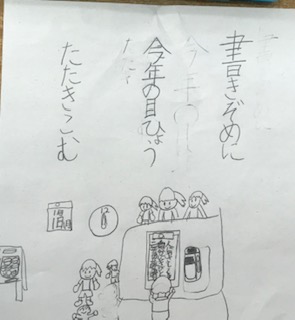 書きぞめに
今年の目ひょう
たたきこむ